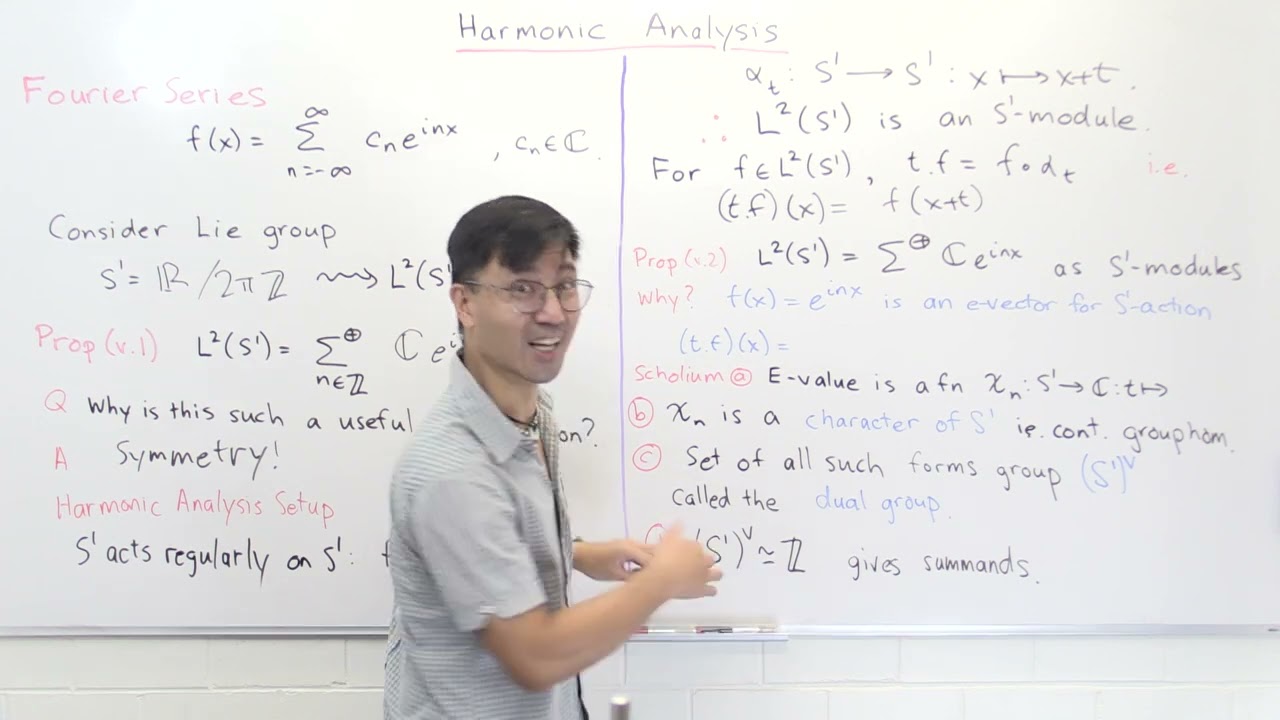 Harmonic Analysis
Fourier Series
f(x) = ∑_{n=-∞}^{∞} cₙ e^{inx} , cₙ ∈ ℂ.
Consider Lie group
S¹ = ℝ/2πℤ ⇝ L²(S¹
Prop (v.1) L²(S¹) = ∑^⊕_{n∈ℤ} ℂ e^{i
Q Why is this such a useful on?
A Symmetry!
Harmonic Analysis Setup
S¹ acts regularly on S¹:
α_t : S¹ → S¹ : x ↦ x+t.
∴ L²(S¹) is an S¹-module.
For f ∈ L²(S¹), t.f = f∘α_t i.e.
(t.f)(x) = f(x+t)
Prop (v.2) L²(S¹) = ∑^⊕ ℂ e^{inx} as S¹-modules
Why? f(x) = e^{inx} is an e-vector for S¹-action
(t.f)(x) =
Scholium ⓐ E-value is a fn χₙ : S¹ → ℂ : t ↦
ⓑ χₙ is a character of S¹ ie. cont. group hom.
ⓒ Set of all such forms group (S¹)^∨
called the dual group.
(S¹)^∨ ≃ ℤ gives summands.